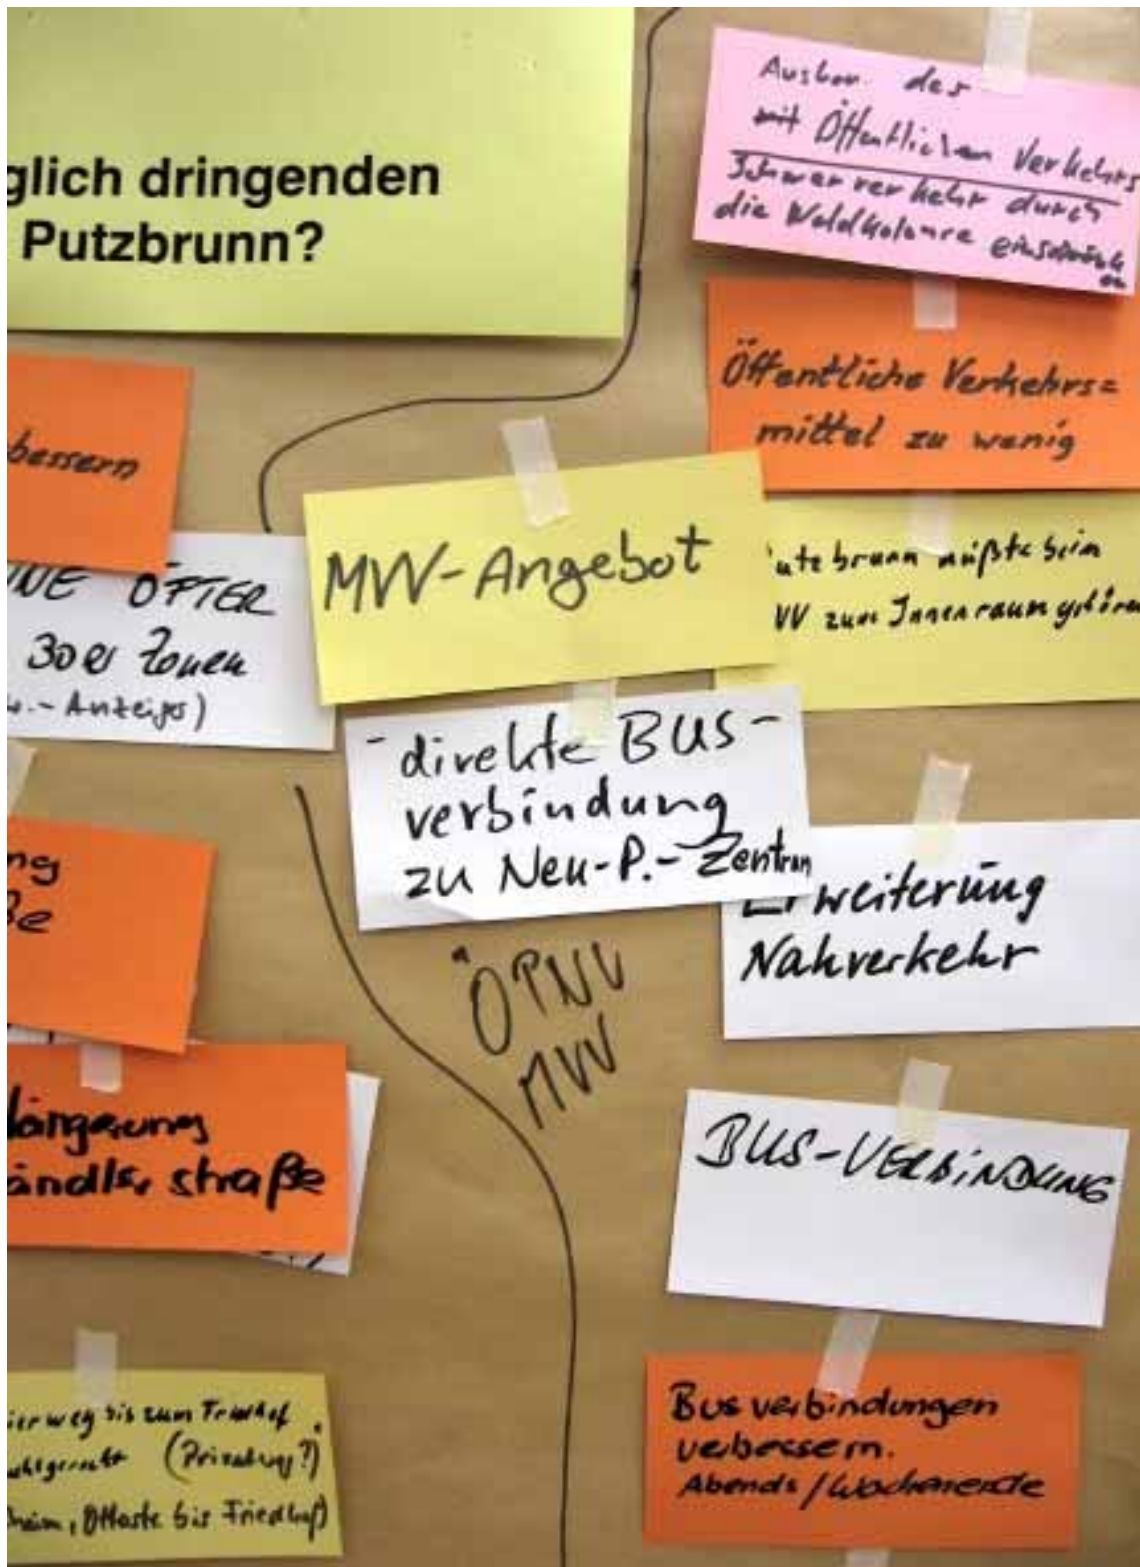 glich dringenden
Putzbrunn?
Ausbau des
mit Öffentlichen Verkehrs
Schwerverkehr durch
die Waldkolonie einschränk
en
Öffentliche Verkehrs=
mittel zu wenig
bessern
MVV-Angebot
utzbrunn müßte beim
VV zum Innenraum gehören
NE ÖFTER
30er Zonen
- Anzeiger)
- direkte BUS-
verbindung
zu Neu-P.- Zentrum
Erweiterung
Nahverkehr
ng
ße
ÖPNV
MVV
längerung
ändlerstraße
BUS-VERBINDUNG
weg bis zum Friedhof
(Privatweg?)
heim, Ottostr bis Friedhof)
Busverbindungen
verbessern.
Abends/Wochenende